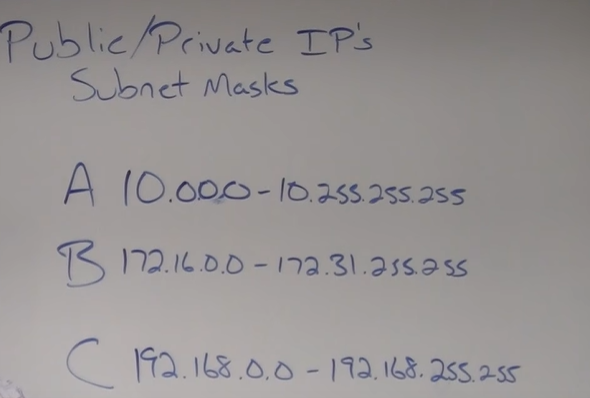 Public/Private IP's
Subnet Masks
A 10.0.0.0 - 10.255.255.255
B 172.16.0.0 - 172.31.255.255
C 192.168.0.0 - 192.168.255.255